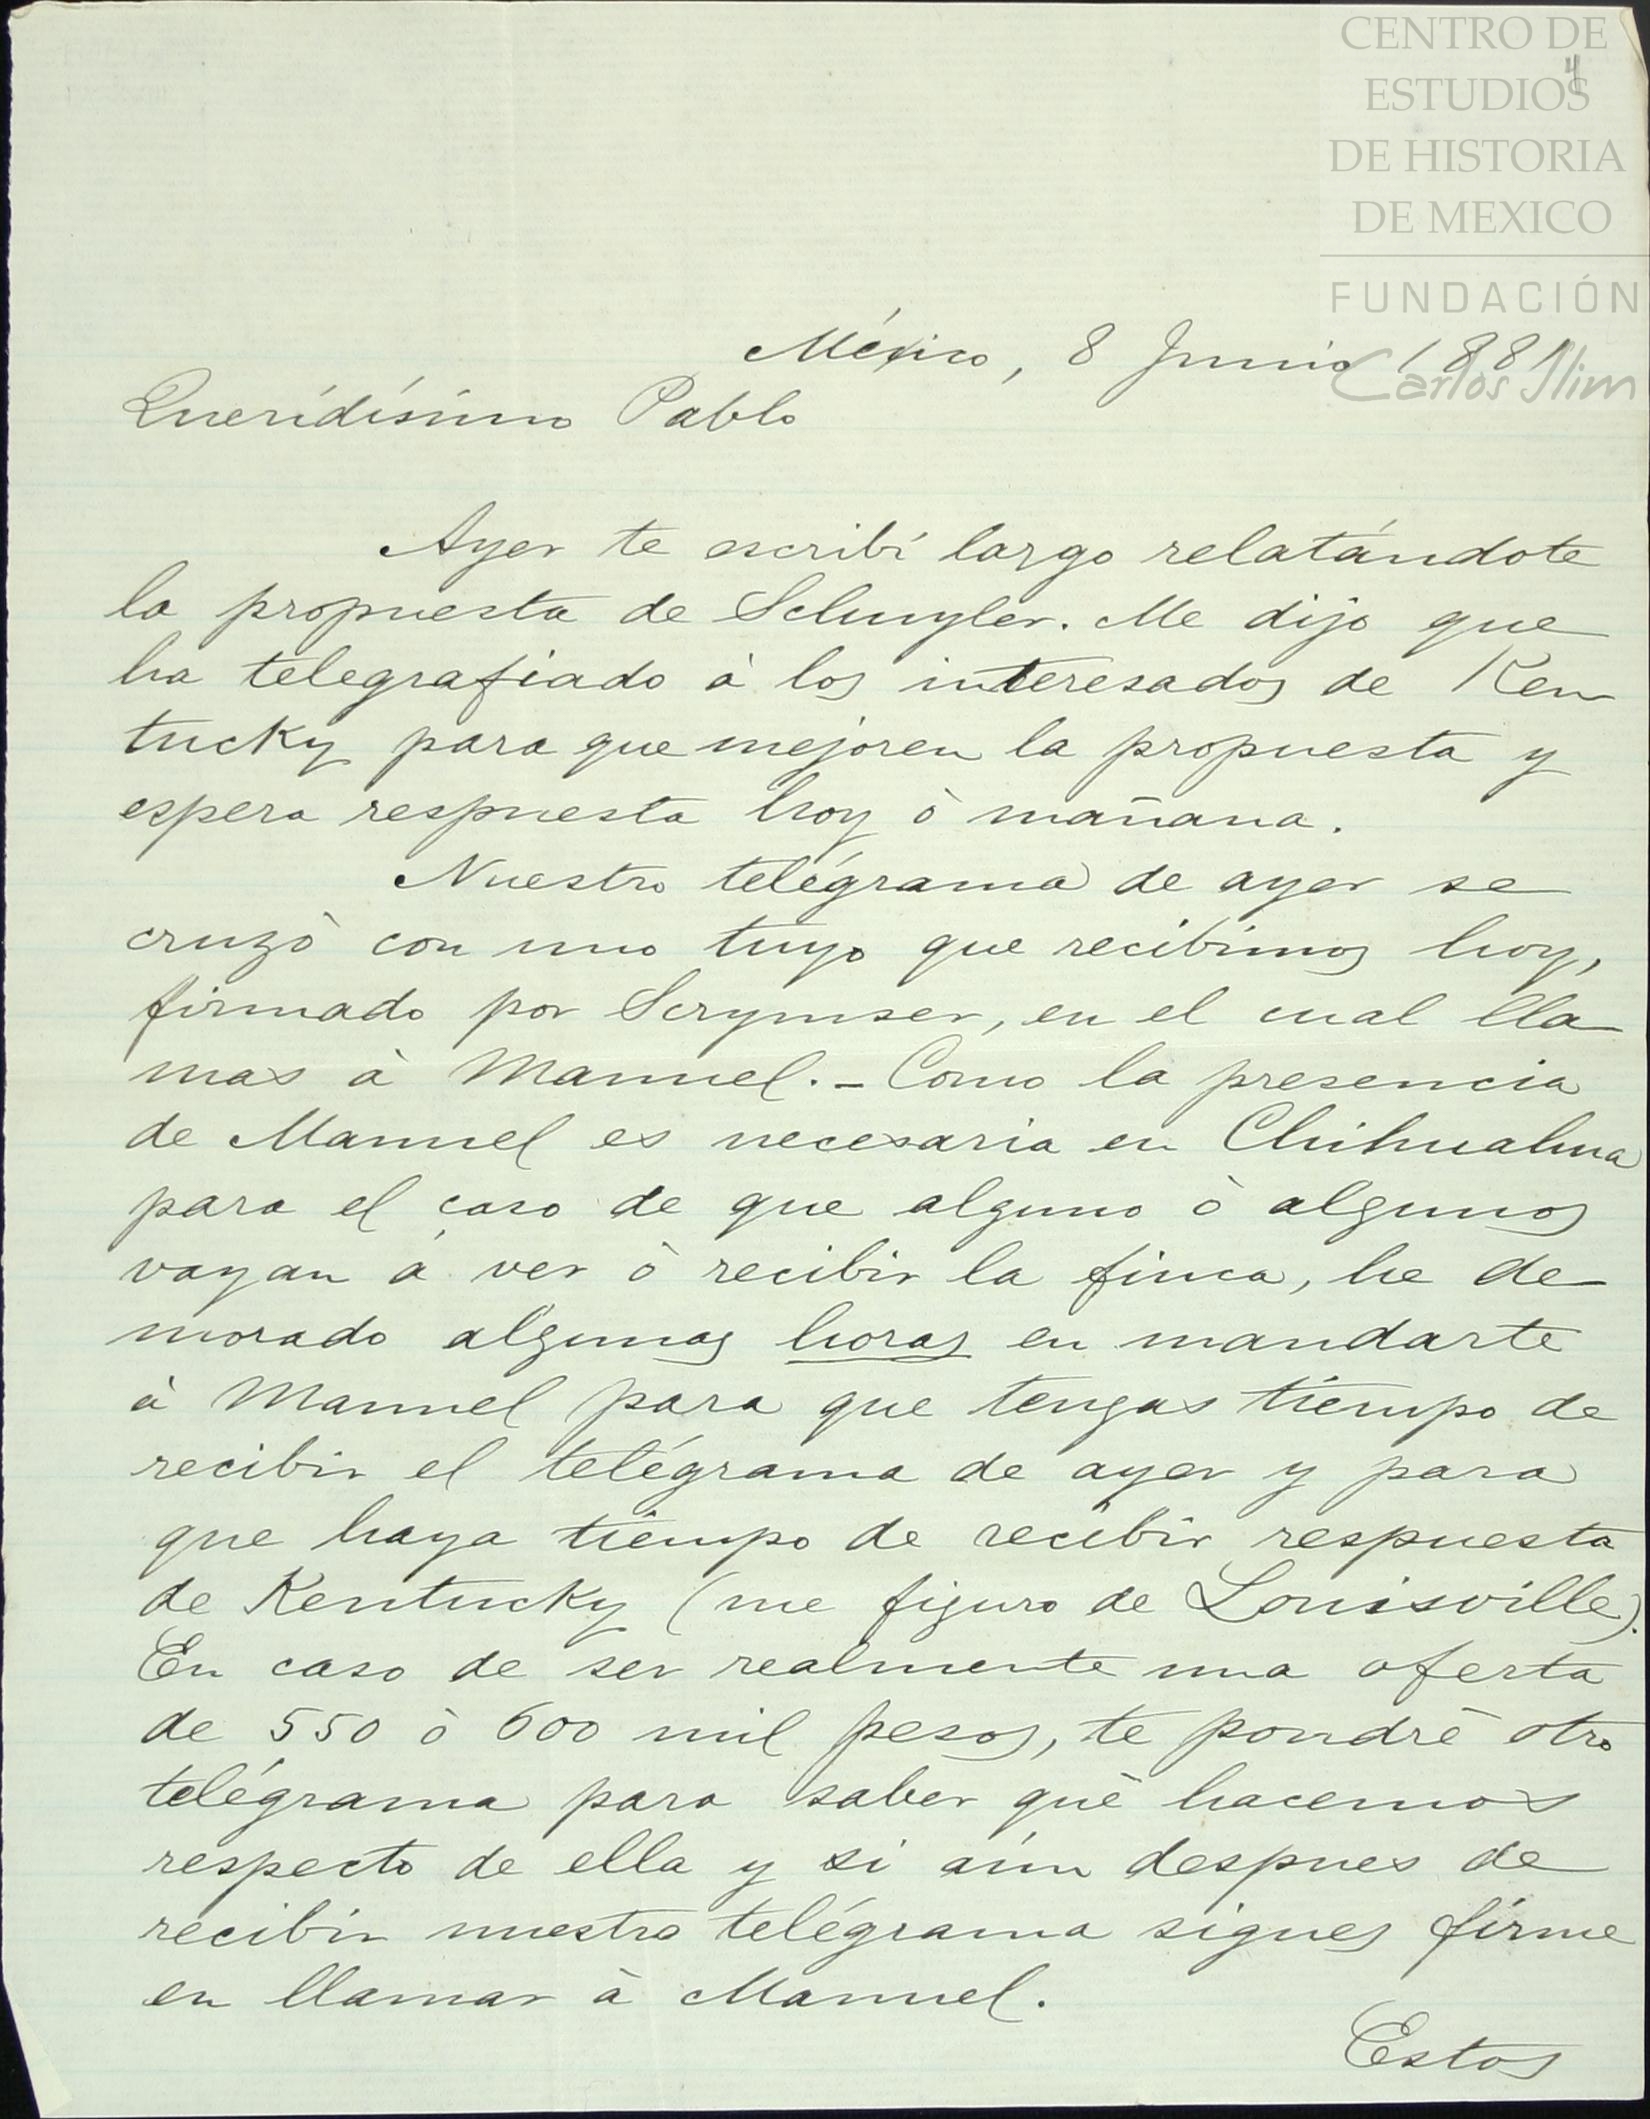 CENTRO DE
ESTUDIOS
DE HISTORIA
DE MEXICO
FUNDACIÓN
Carlos Slim
4
México, 8 Junio 1881
Queridísimo Pablo
Ayer te escribí largo relatándote
la propuesta de Schuyler. Me dijo que
ha telegrafiado à los interesados de Ken
tucky para que mejoren la propuesta y
espera respuesta hoy ò mañana.
Nuestro telégrama de ayer se
cruzò con uno tuyo que recibimos hoy,
firmado por Scrymser, en el cual lla
mas à Manuel. - Como la presencia
de Manuel es necesaria en Chihuahua
para el caso de que alguno ò algunos
vayan á ver ò recibir la finca, he de
morado algunas horas en mandarte
à Manuel para que tengas tiempo de
recibir el telégrama de ayer y para
que haya tiempo de recibir respuesta
de Kentucky (me figuro de Louisville).
En caso de ser realmente una oferta
de 550 ò 600 mil pesos, te pondrè otro
telégrama para saber què hacemos
respecto de ella y si aún despues de
recibir nuestro telégrama sigues firme
en llamar à Manuel.
Estos